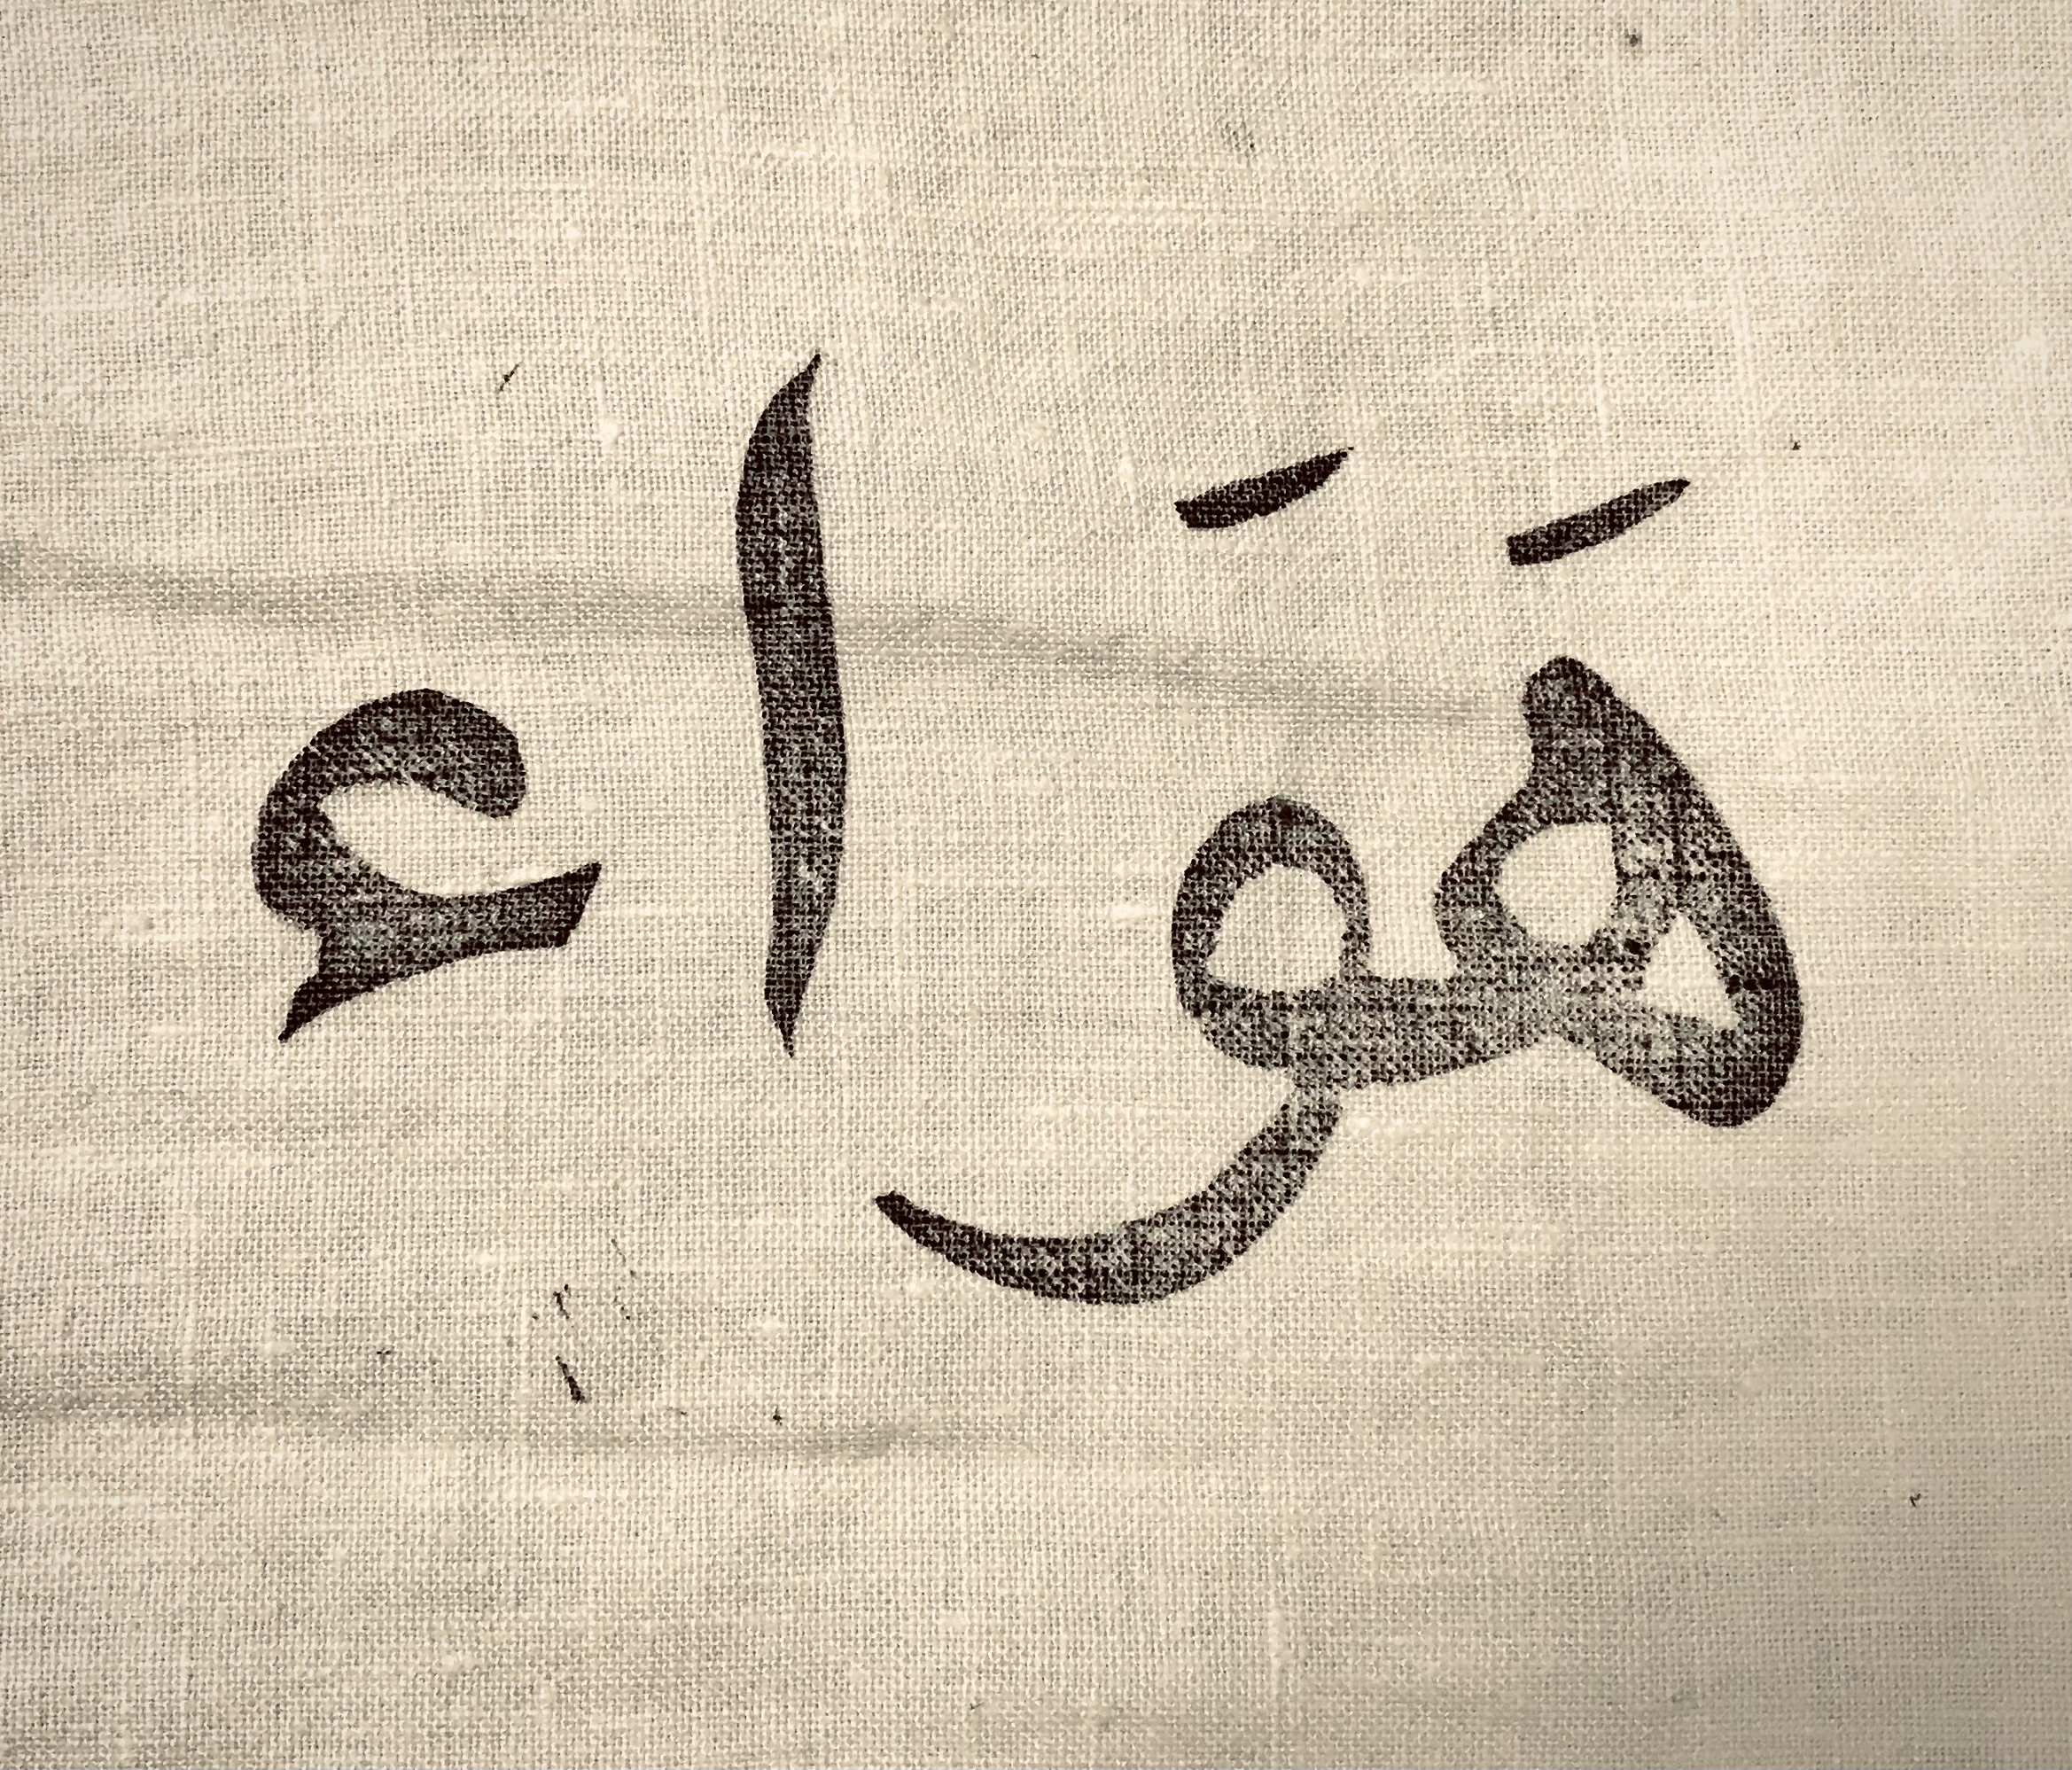 هَوَاء